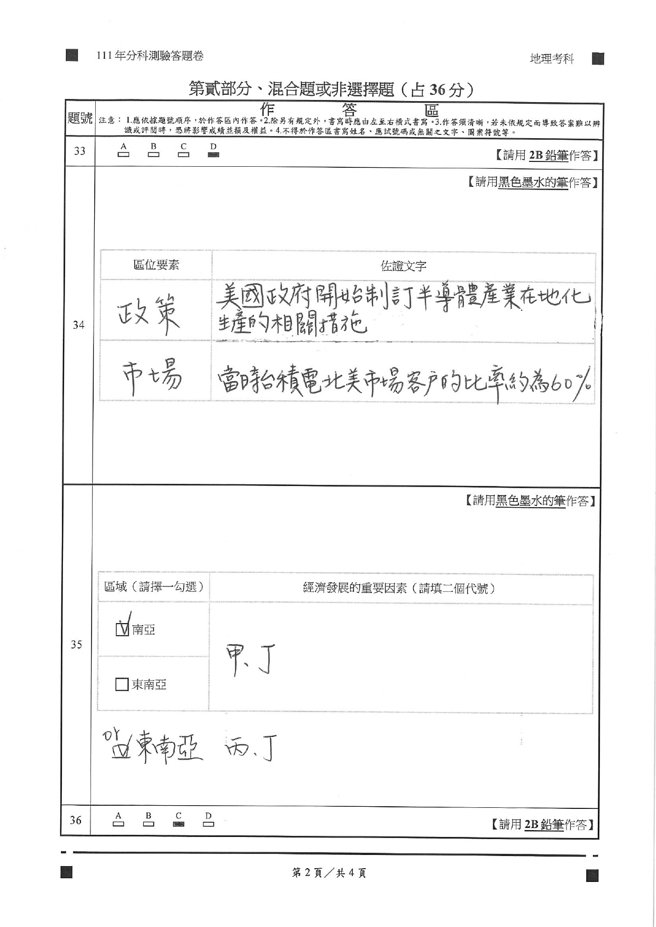 111年分科測驗答題卷 地理考科
第貳部分、混合題或非選擇題（占36分）
題號 作答區
注意：1.應依據題號順序，於作答區內作答。2.除另有規定外，書寫時應由左至右橫式書寫。3.作答須清晰，若未依規定而導致答案難以辨
識或評閱時，恐將影響成績並損及權益。4.不得於作答區書寫姓名、應試號碼或無關之文字、圖案符號等。
33 A B C D 【請用2B鉛筆作答】
【請用黑色墨水的筆作答】
區位要素 佐證文字
34
政策 美國政府開始制訂半導體產業在地化
生產的相關措施
市場 當時台積電北美市場客戶的比率約為60%
【請用黑色墨水的筆作答】
區域（請擇一勾選） 經濟發展的重要因素（請填二個代號）
35
南亞
甲、丁
東南亞
東南亞 丙、丁
36 A B C D 【請用2B鉛筆作答】
第2頁／共4頁